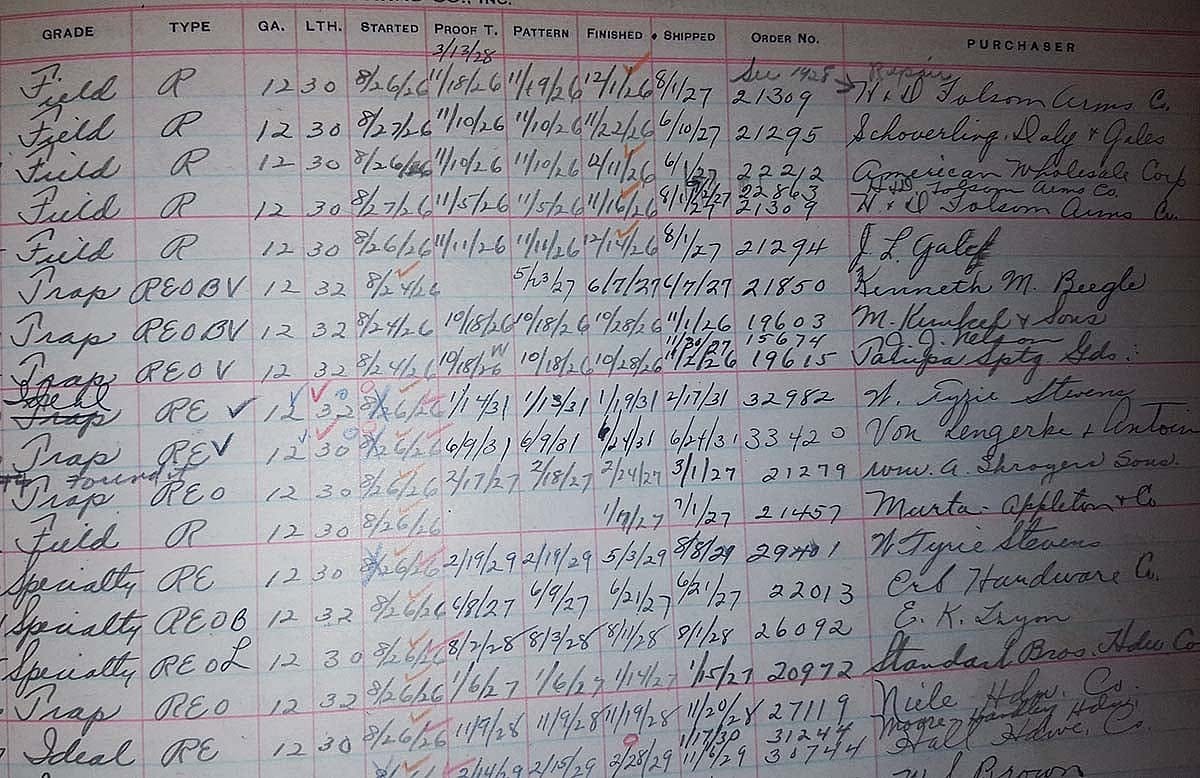 CO., INC.
GRADE TYPE GA. LTH. STARTED PROOF T. PATTERN FINISHED SHIPPED ORDER NO. PURCHASER
3/13/28
See 1928 → Repair
Field R 12 30 8/26/26 11/18/26 11/19/26 12/1/26 8/1/27 21309 H & D Folsom Arms Co.
Field R 12 30 8/27/26 11/10/26 11/10/26 11/22/26 6/10/27 21295 Schoverling, Daly & Gales
Field R 12 30 8/26/26 11/10/26 11/10/26 12/11/26 6/1/27 22212 American Wholesale Corp
22863 H & D Folsom Arms Co.
Field R 12 30 8/27/26 11/5/26 11/5/26 11/16/26 8/1/27 21309 H & D Folsom Arms Co.
Field R 12 30 8/26/26 11/11/26 11/11/26 12/14/26 8/1/27 21294 J. L. Galef
Trap REOBV 12 32 8/24/26 5/23/27 6/7/27 6/7/27 21850 Kenneth M. Beegle
Trap REOBV 12 32 8/24/26 10/18/26 10/18/26 10/28/26 11/1/26 19603 M. & Sons
11/30/27 15674 Nelson
Trap REOV 12 32 8/24/26 10/18/26 10/18/26 10/28/26 19615 Sptg. Gds.
Ideal
Trap RE 12 32 8/26/26 1/14/31 1/13/31 1/19/31 2/17/31 32982 W. Tyrie Stevens
Trap REV 12 30 8/26/26 6/9/31 6/9/31 6/24/31 6/24/31 33420 Von Lengerke & Antoine
Found it
Trap REO 12 30 8/26/26 2/17/27 2/18/27 2/24/27 3/1/27 21279 Wm. A. Shroyers Sons.
Field R 12 30 8/26/26 1/17/27 7/1/27 21457 Murta-Appleton & Co
Specialty RE 12 30 8/26/26 2/19/29 2/19/29 5/3/29 8/8/29 W Tyrie Stevens
Specialty REOB 12 32 8/26/26 6/8/27 6/9/27 6/21/27 6/21/27 22013 Erb Hardware Co.
Specialty REOL 12 30 8/26/26 8/2/28 8/3/28 8/11/28 8/1/28 26092 E. K.
Trap REO 12 32 8/26/26 1/6/27 1/6/27 1/14/27 1/15/27 20972 Standard Bros. Hdw Co
Ideal RE 12 30 8/26/26 11/9/28 11/9/28 11/19/28 11/20/28 27119 Hdw. Co.
1/17/30 31244 Moore Handley Hdw.
2/14/29 2/15/29 2/28/29 11/6/29 30744 Hall Hdwe. Co.
W J Brown